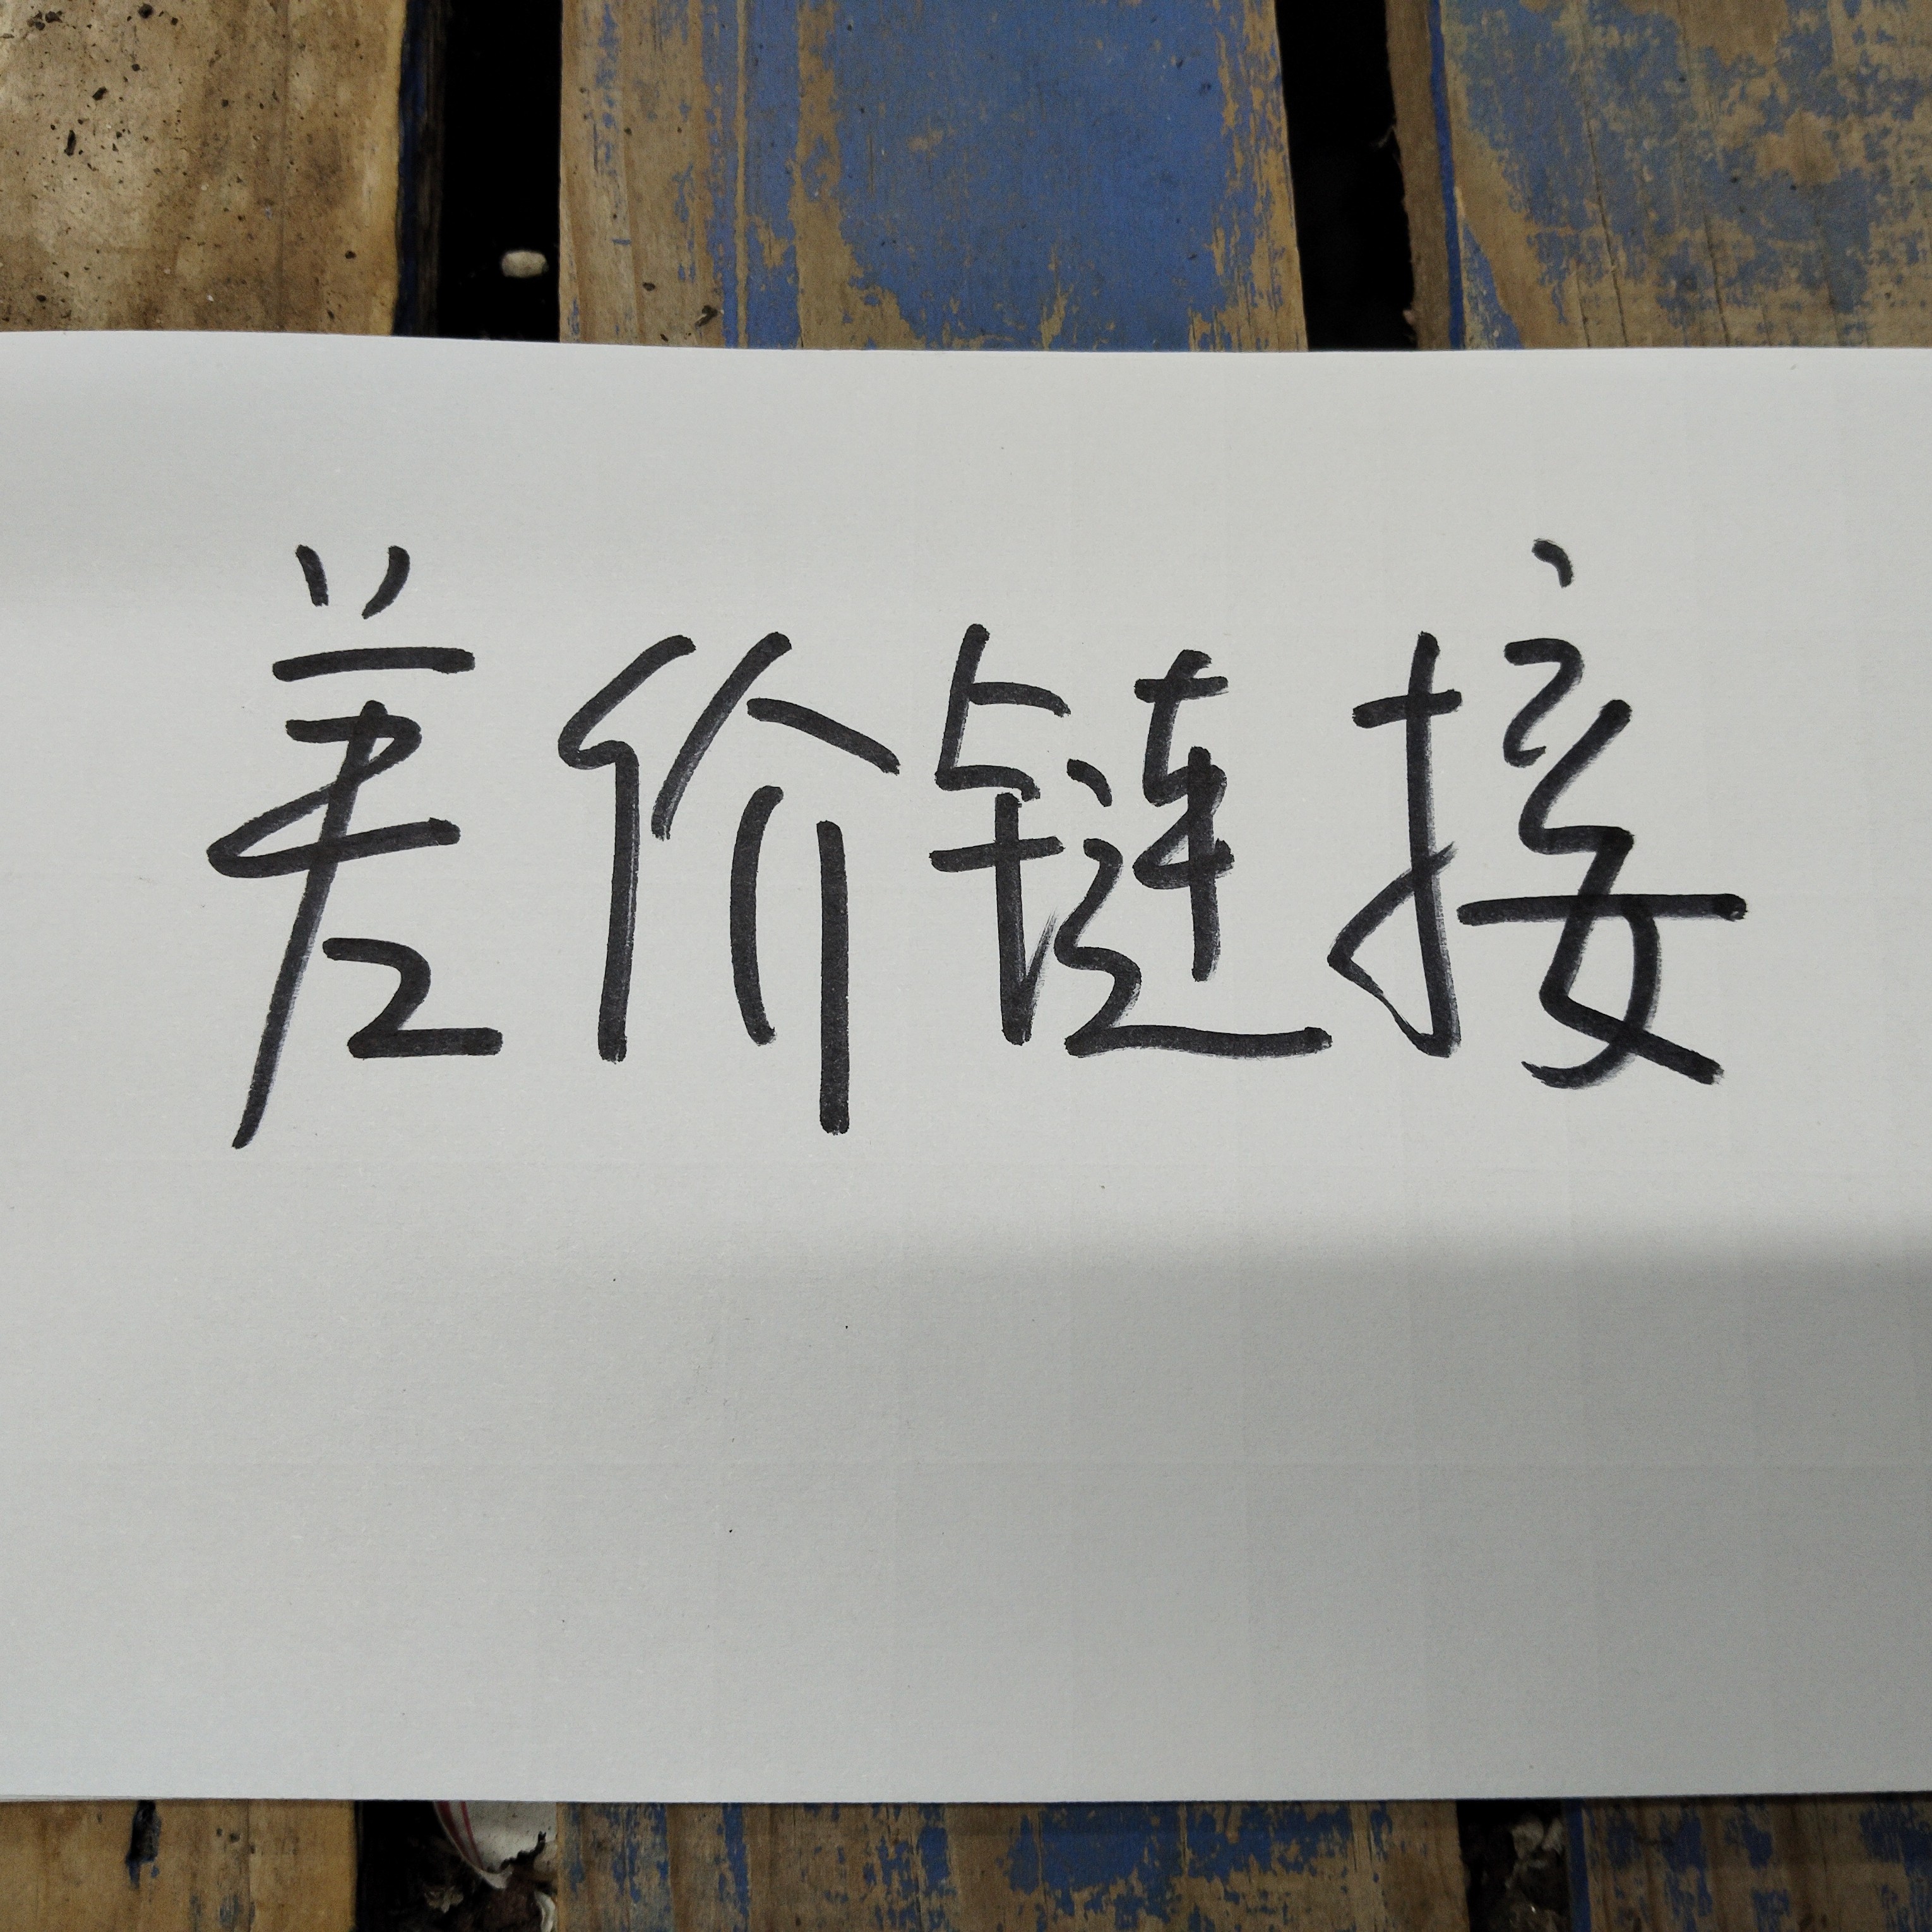 差价链接